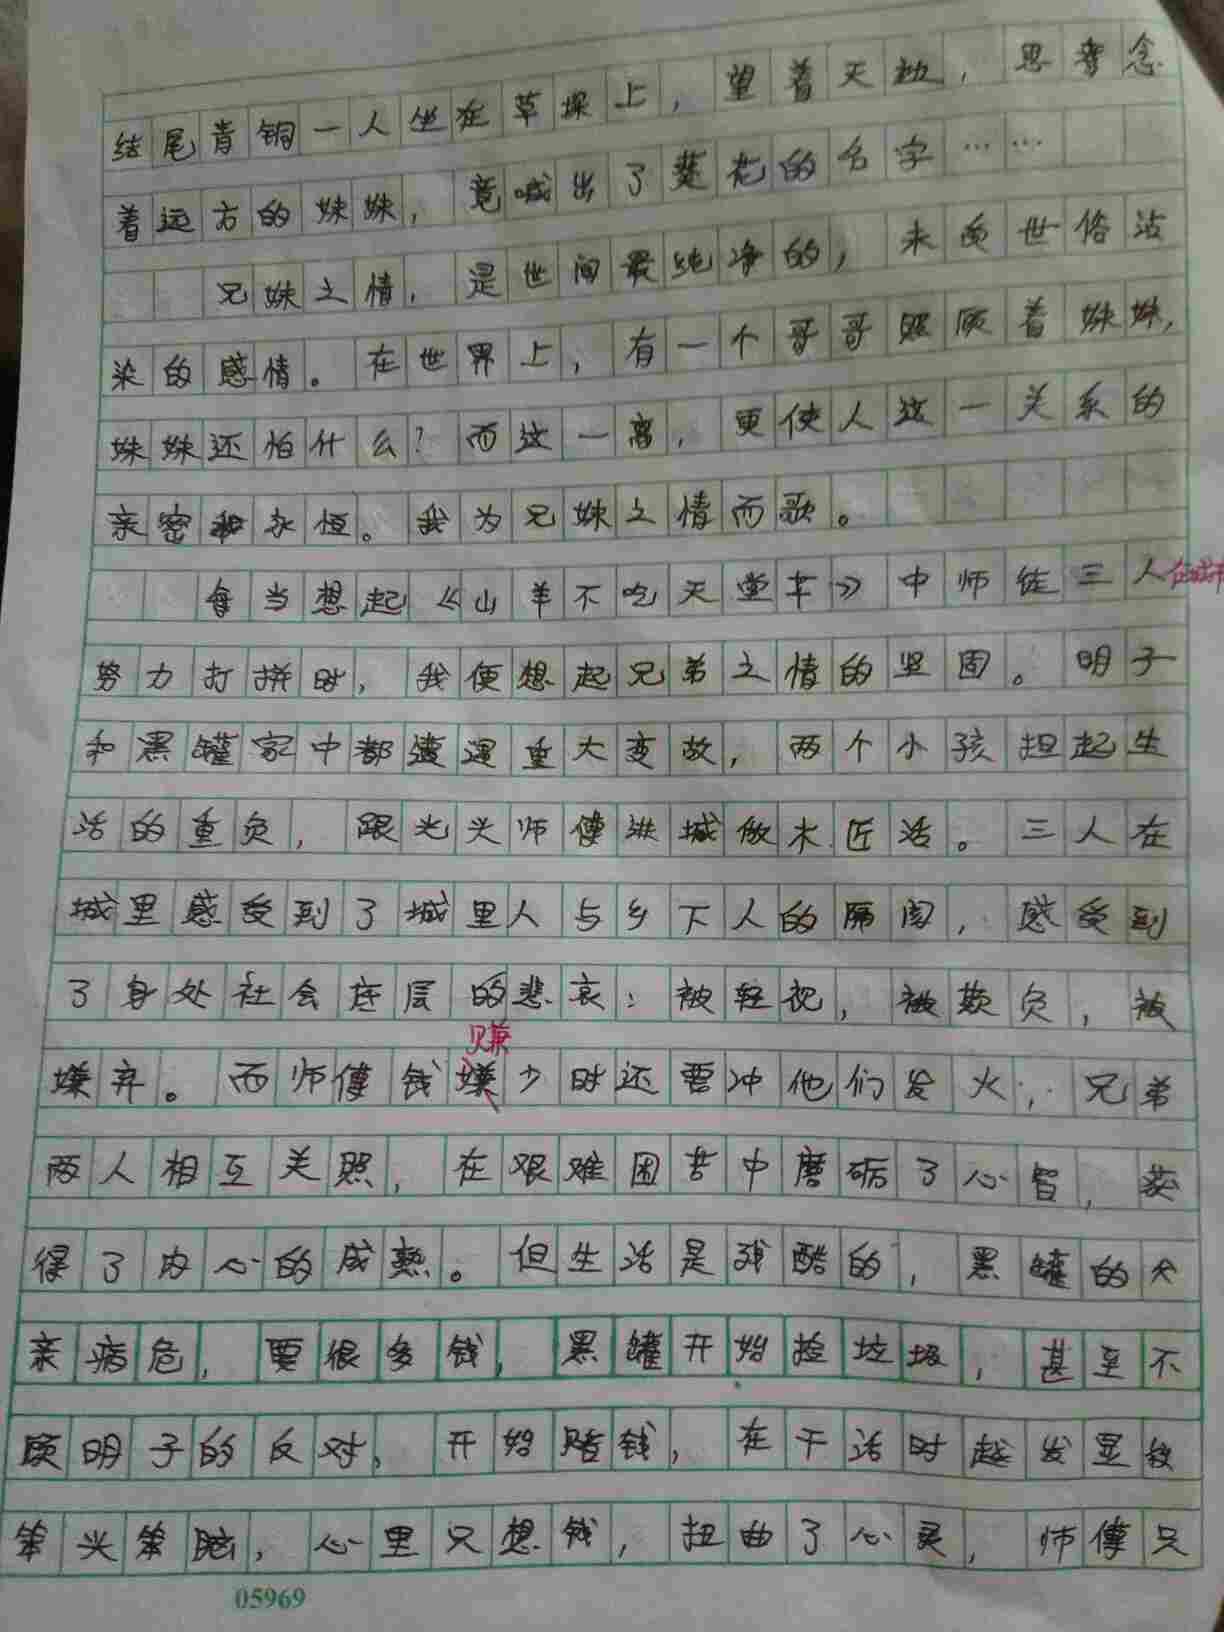 结尾青铜一人坐在草垛上，望着天边，思念
着远方的妹妹，竟喊出了葵花的名字……
兄妹之情，是世间最纯净的，未受世俗沾
染的感情。在世界上，有一个哥哥照顾着妹妹，
妹妹还怕什么？而这一离，更使人这一关系的
亲密和永恒。我为兄妹之情而歌。
每当想起《山羊不吃天堂草》中师徒三人在城市
努力打拼时，我便想起兄弟之情的坚固。明子
和黑罐家中都遭遇重大变故，两个小孩担起生
活的重负，跟光头师傅进城做木匠活。三人在
城里感受到了城里人与乡下人的隔阂，感受到
了身处社会底层的悲哀：被轻视，被欺负，被
嫌弃。而师傅钱嫌少时还要冲他们发火；兄弟
赚
两人相互关照，在艰难困苦中磨砺了心智，获
得了内心的成熟。但生活是残酷的，黑罐的父
亲病危，要很多钱，黑罐开始捡垃圾，甚至不
顾明子的反对，开始赌钱，在干活时越发显较
笨头笨脑，心里只想钱，扭曲了心灵，师傅只
05969